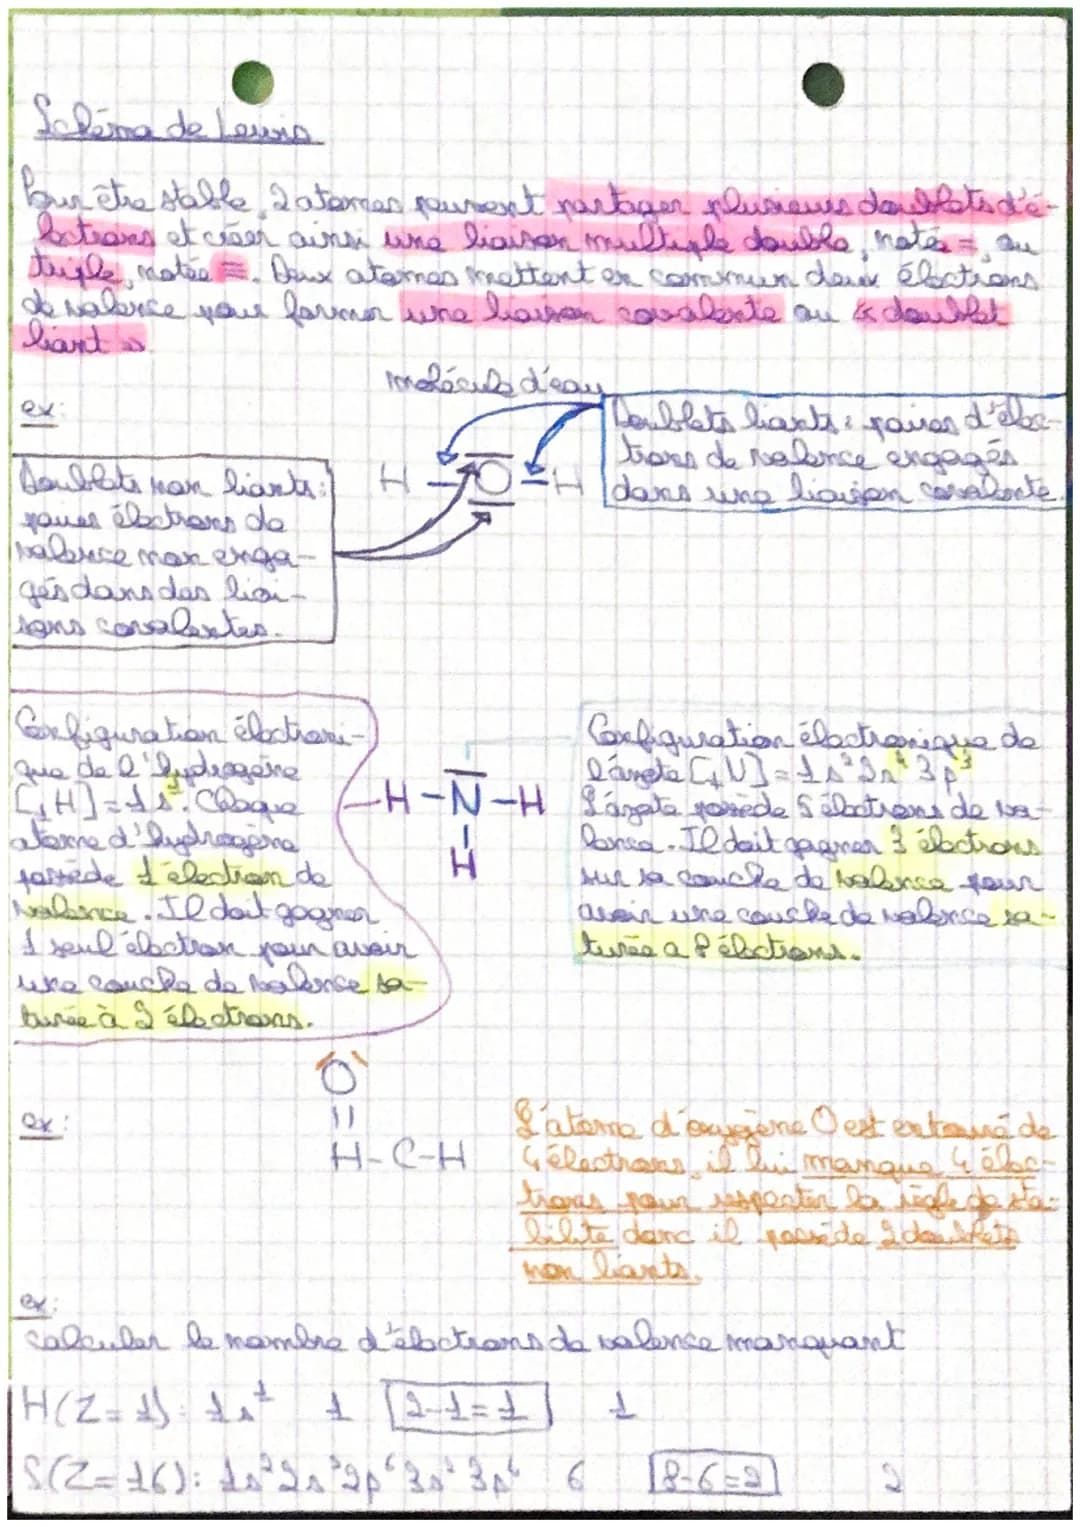 Schéma de Lewis
Pour être stable, 2 atomes peuvent partager plusieurs doublets d'é-
lectrons et créer ainsi une liaison multiple double, notée =, ou
triple, notée ≡. Deux atomes mettent en commun deux électrons
de valence pour former une liaison covalente ou « doublet
liant »
molécule d'eau
ex:
Doublets liants : paires d'élec-
trons de valence engagés
dans une liaison covalente.
H - O - H
Doublets non liants:
paires électrons de
valence non enga-
gés dans des liai-
sons covalentes.
Configuration électroni-
que de l'hydrogène
[₁H] = 1s¹. Chaque
atome d'hydrogène
possède 1 électron de
valence. Il doit gagner
1 seul électron pour avoir
une couche de valence sa-
turée à 2 électrons.
H - N - H
H
Configuration électronique de
l'azote
L'azote possède 5 électrons de va-
lence. Il doit gagner 3 électrons
sur sa couche de valence pour
avoir une couche de valence sa-
turée a 8 électrons.
ex:
O
||
H - C - H
L'atome d'oxygène O est entouré de
4 électrons, il lui manque 4 élec-
trons pour respecter la règle de sta-
bilité donc il possède 2 doublets
non liants.
ex:
calculer le nombre d'électrons de valence manquant
H(Z=1): 1s¹ 1 2-1=1 1
S(Z=16): 6 8-6=2 2